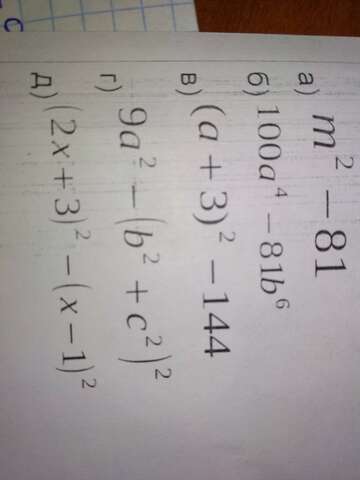 а) m² − 81
б) 100a⁴ − 81b⁶
в) (a + 3)² − 144
г) 9a² − (b² + c²)²
д) (2x + 3)² − (x − 1)²